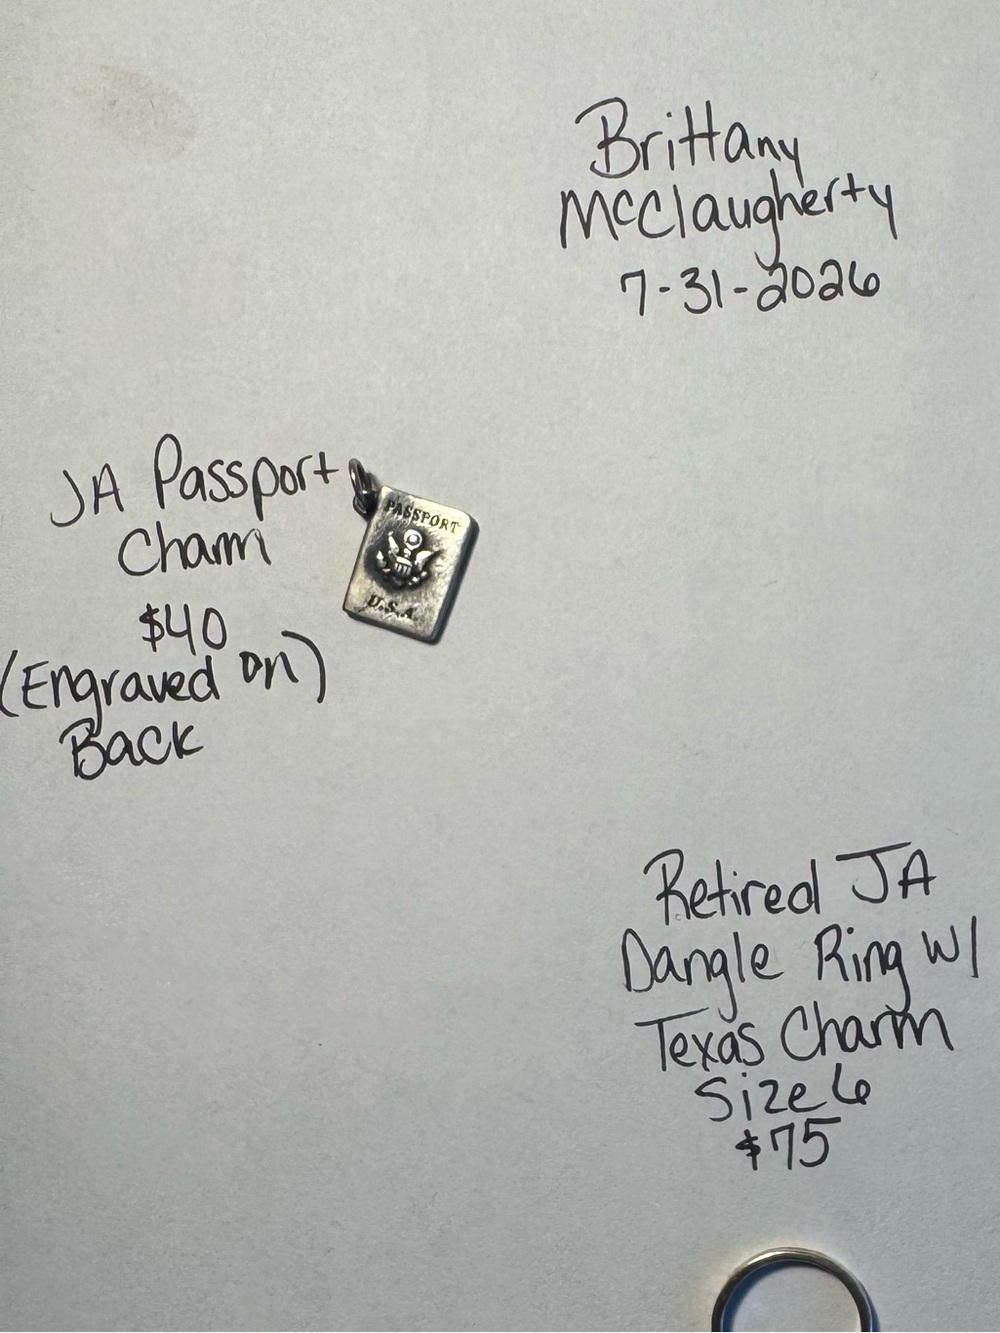 Brittany
McClaugherty
7-31-2026
JA Passport
Charm
$40
(Engraved on)
Back
PASSPORT
U.S.A.
Retired JA
Dangle Ring w/
Texas Charm
Size 6
$75